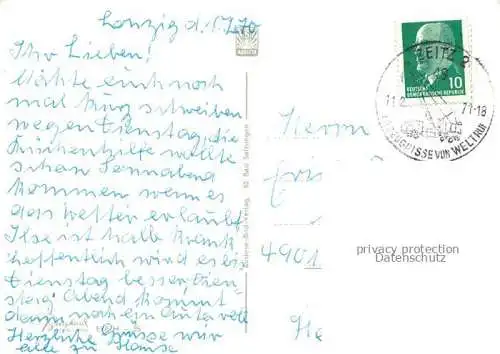 Lonzig d. 1.7.70
Ihr Lieben!
Möchte euch noch
mal kurz schreiben
wegen Dienstag, die
wollte
schon Sonnabend
kommen wenn es
das Wetter erlaubt
Ilse ist halb krank
hoffentlich wird es bis
Dienstag besser Dien-
stag Abend kommt
dann noch ein Auto voll
Herzliche Grüsse wir
alle zu Hause
Herrn
4901
ZEITZ 2
11.2 71-18
VON WELTRUF
DEUTSCHE
DEMOKRATISCHE REPUBLIK
10
Bild-Verlag, Bad Salzungen
privacy protection
Datenschutz